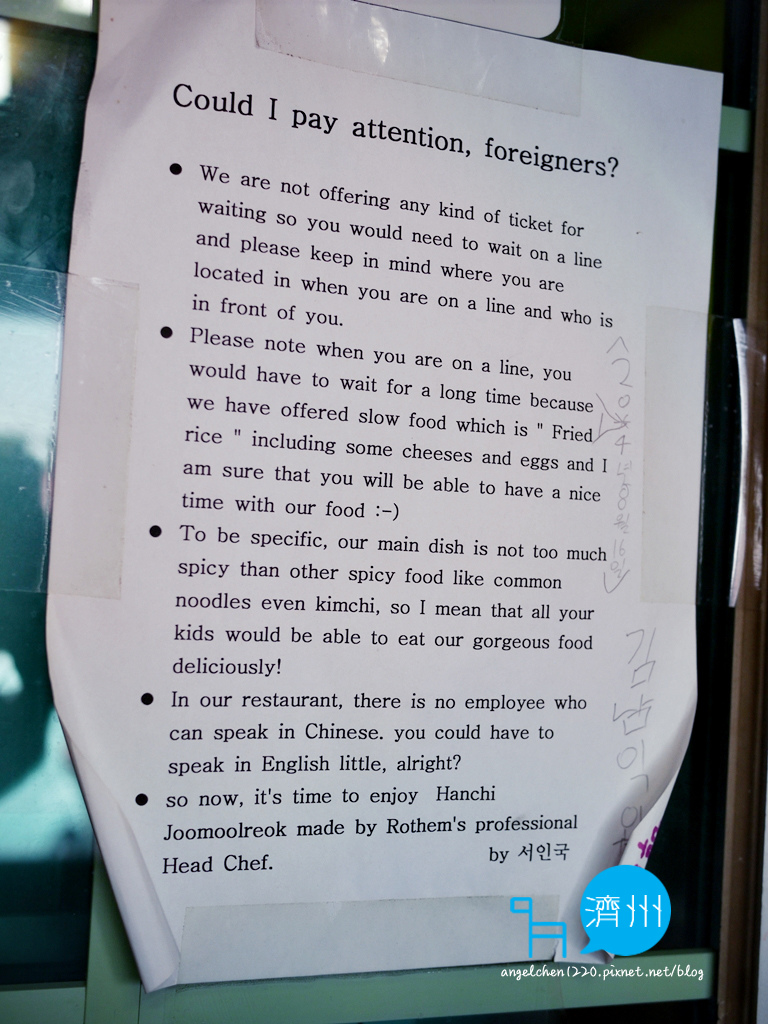 Could I pay attention, foreigners?
● We are not offering any kind of ticket for
waiting so you would need to wait on a line
and please keep in mind where you are
located in when you are on a line and who is
in front of you.
● Please note when you are on a line, you
would have to wait for a long time because
we have offered slow food which is " Fried
rice " including some cheeses and eggs and I
am sure that you will be able to have a nice
time with our food :-)
● To be specific, our main dish is not too much
spicy than other spicy food like common
noodles even kimchi, so I mean that all your
kids would be able to eat our gorgeous food
deliciously!
● In our restaurant, there is no employee who
can speak in Chinese. you could have to
speak in English little, alright?
● so now, it's time to enjoy Hanchi
Joomoolreok made by Rothem's professional
Head Chef.
by 서인국
濟州
angelchen1220.pixnet.net/blog